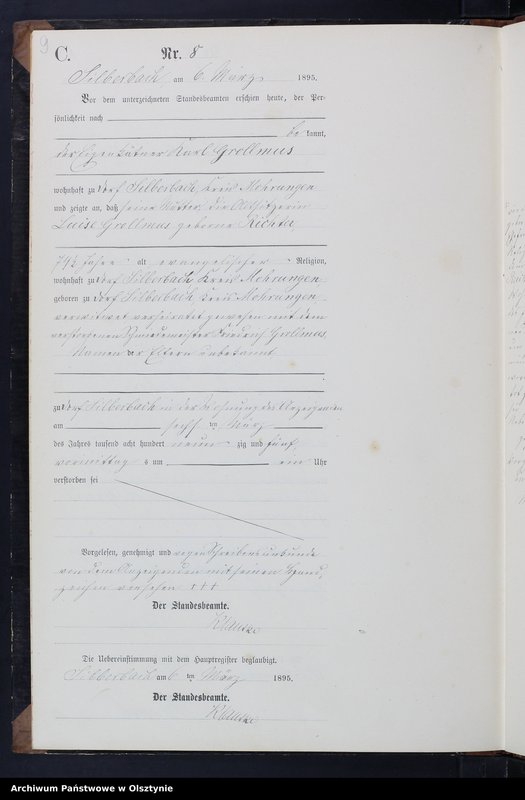 9
C.
Nr. 8
Silberbach, am 6. März 1895.
Vor dem unterzeichneten Standesbeamten erschien heute, der Per-
sönlichkeit nach
be kannt,
der Eigenkätner Karl Grollmus
wohnhaft zu Dorf Silberbach, Kreis Mohrungen
und zeigte an, daß seine Mutter, die Altsitzerin
Luise Grollmus geborne Richter
74½ Jahre alt evangelischer Religion,
wohnhaft zu Dorf Silberbach, Kreis Mohrungen
geboren zu Dorf Silberbach, Kreis Mohrungen
verwitwet verheiratet gewesen mit dem
verstorbenen Schmiedemeister Friedrich Grollmus,
Namen der Eltern unbekannt
zu Dorf Silberbach in der Wohnung des Anzeigenden
am sechs ten März
des Jahres tausend acht hundert neun zig und fünf
vormittag s um ein Uhr
verstorben sei
Vorgelesen, genehmigt und wegen Schreibensunkunde
von dem Anzeigenden mit seinem Hand-
zeichen versehen +++
Der Standesbeamte.
Die Uebereinstimmung mit dem Hauptregister beglaubigt.
Silberbach am 6 ten März 1895.
Der Standesbeamte.
Archiwum Państwowe w Olsztynie